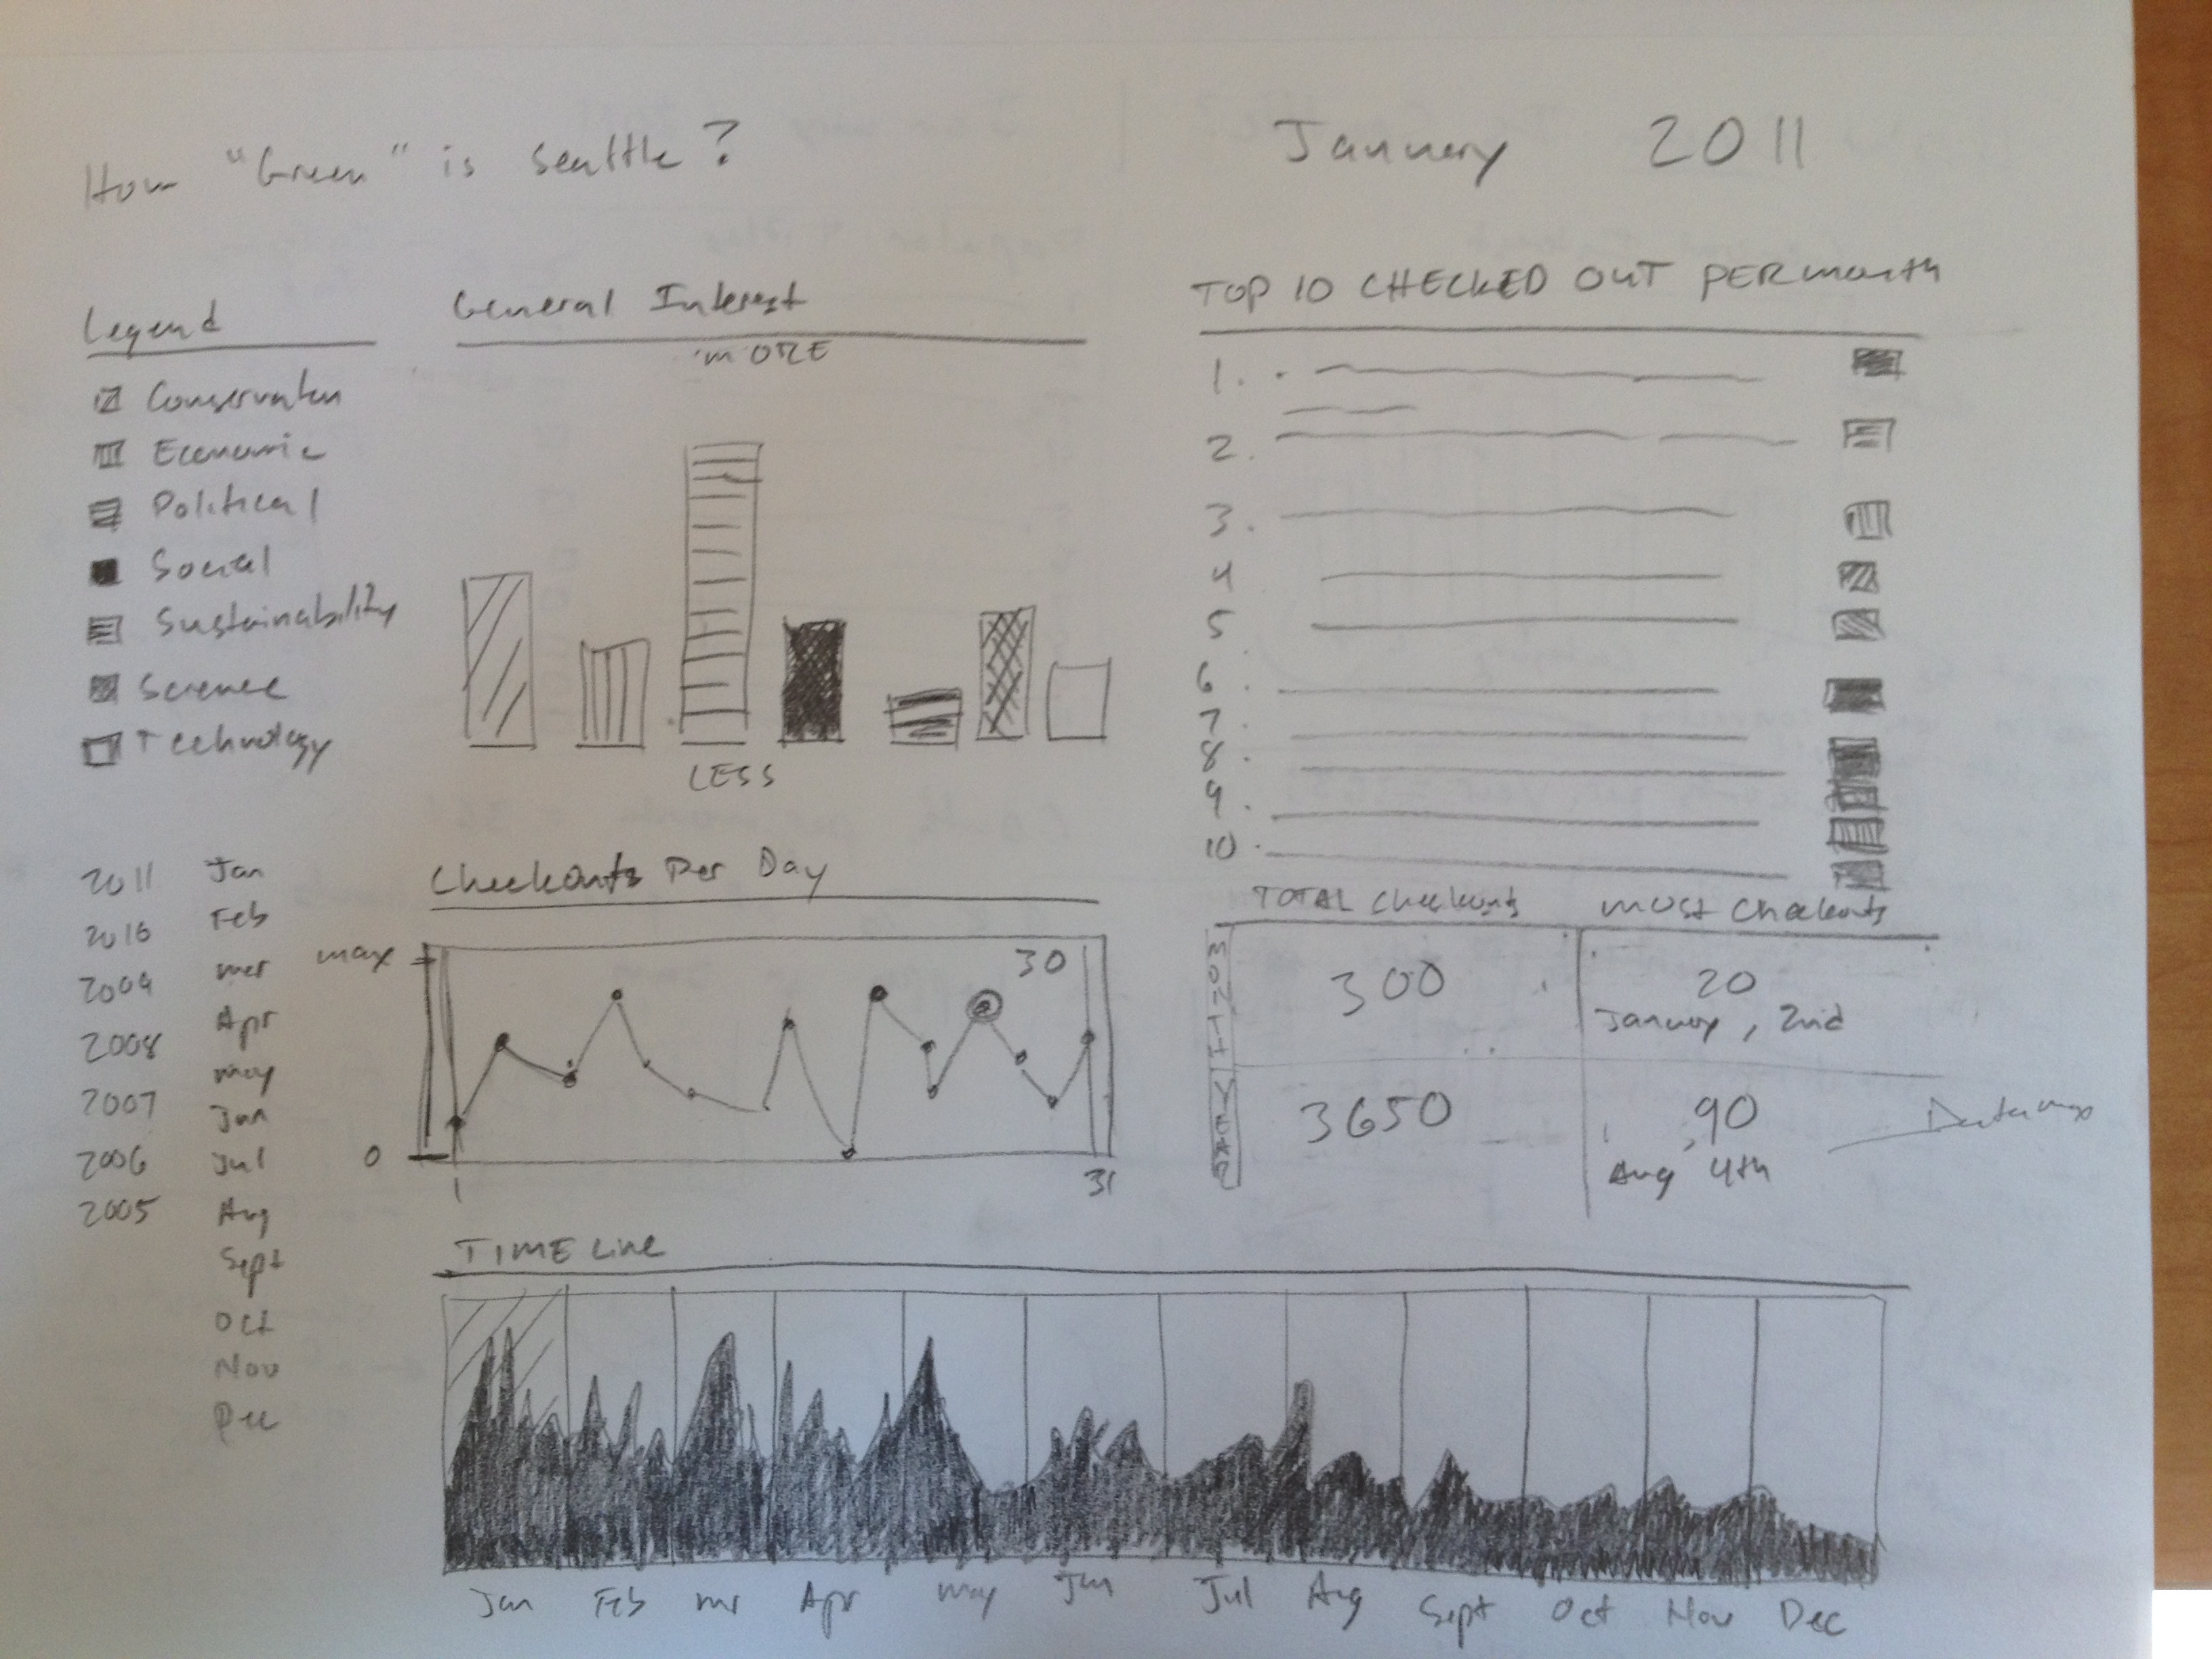 How "Green" is Seattle?
January 2011
Legend
Conservaten
Economic
Political
Social
Sustainability
Science
Technology
General Interest
MORE
LESS
TOP 10 CHECKED OUT PER month
1.
2.
3.
4
5
6.
7.
8.
9.
10.
2011
2010
2009
2008
2007
2006
2005
Jan
Feb
mar
Apr
may
Jun
Jul
Aug
Sept
Oct
Nov
Dec
Checkouts Per Day
max
30
0
1
31
TOTAL Checkouts
most Checkouts
300
20
January, 2nd
3650
90
Aug 4th
TIME Line
Jan Feb mr Apr may Jun Jul Aug Sept Oct Nov Dec